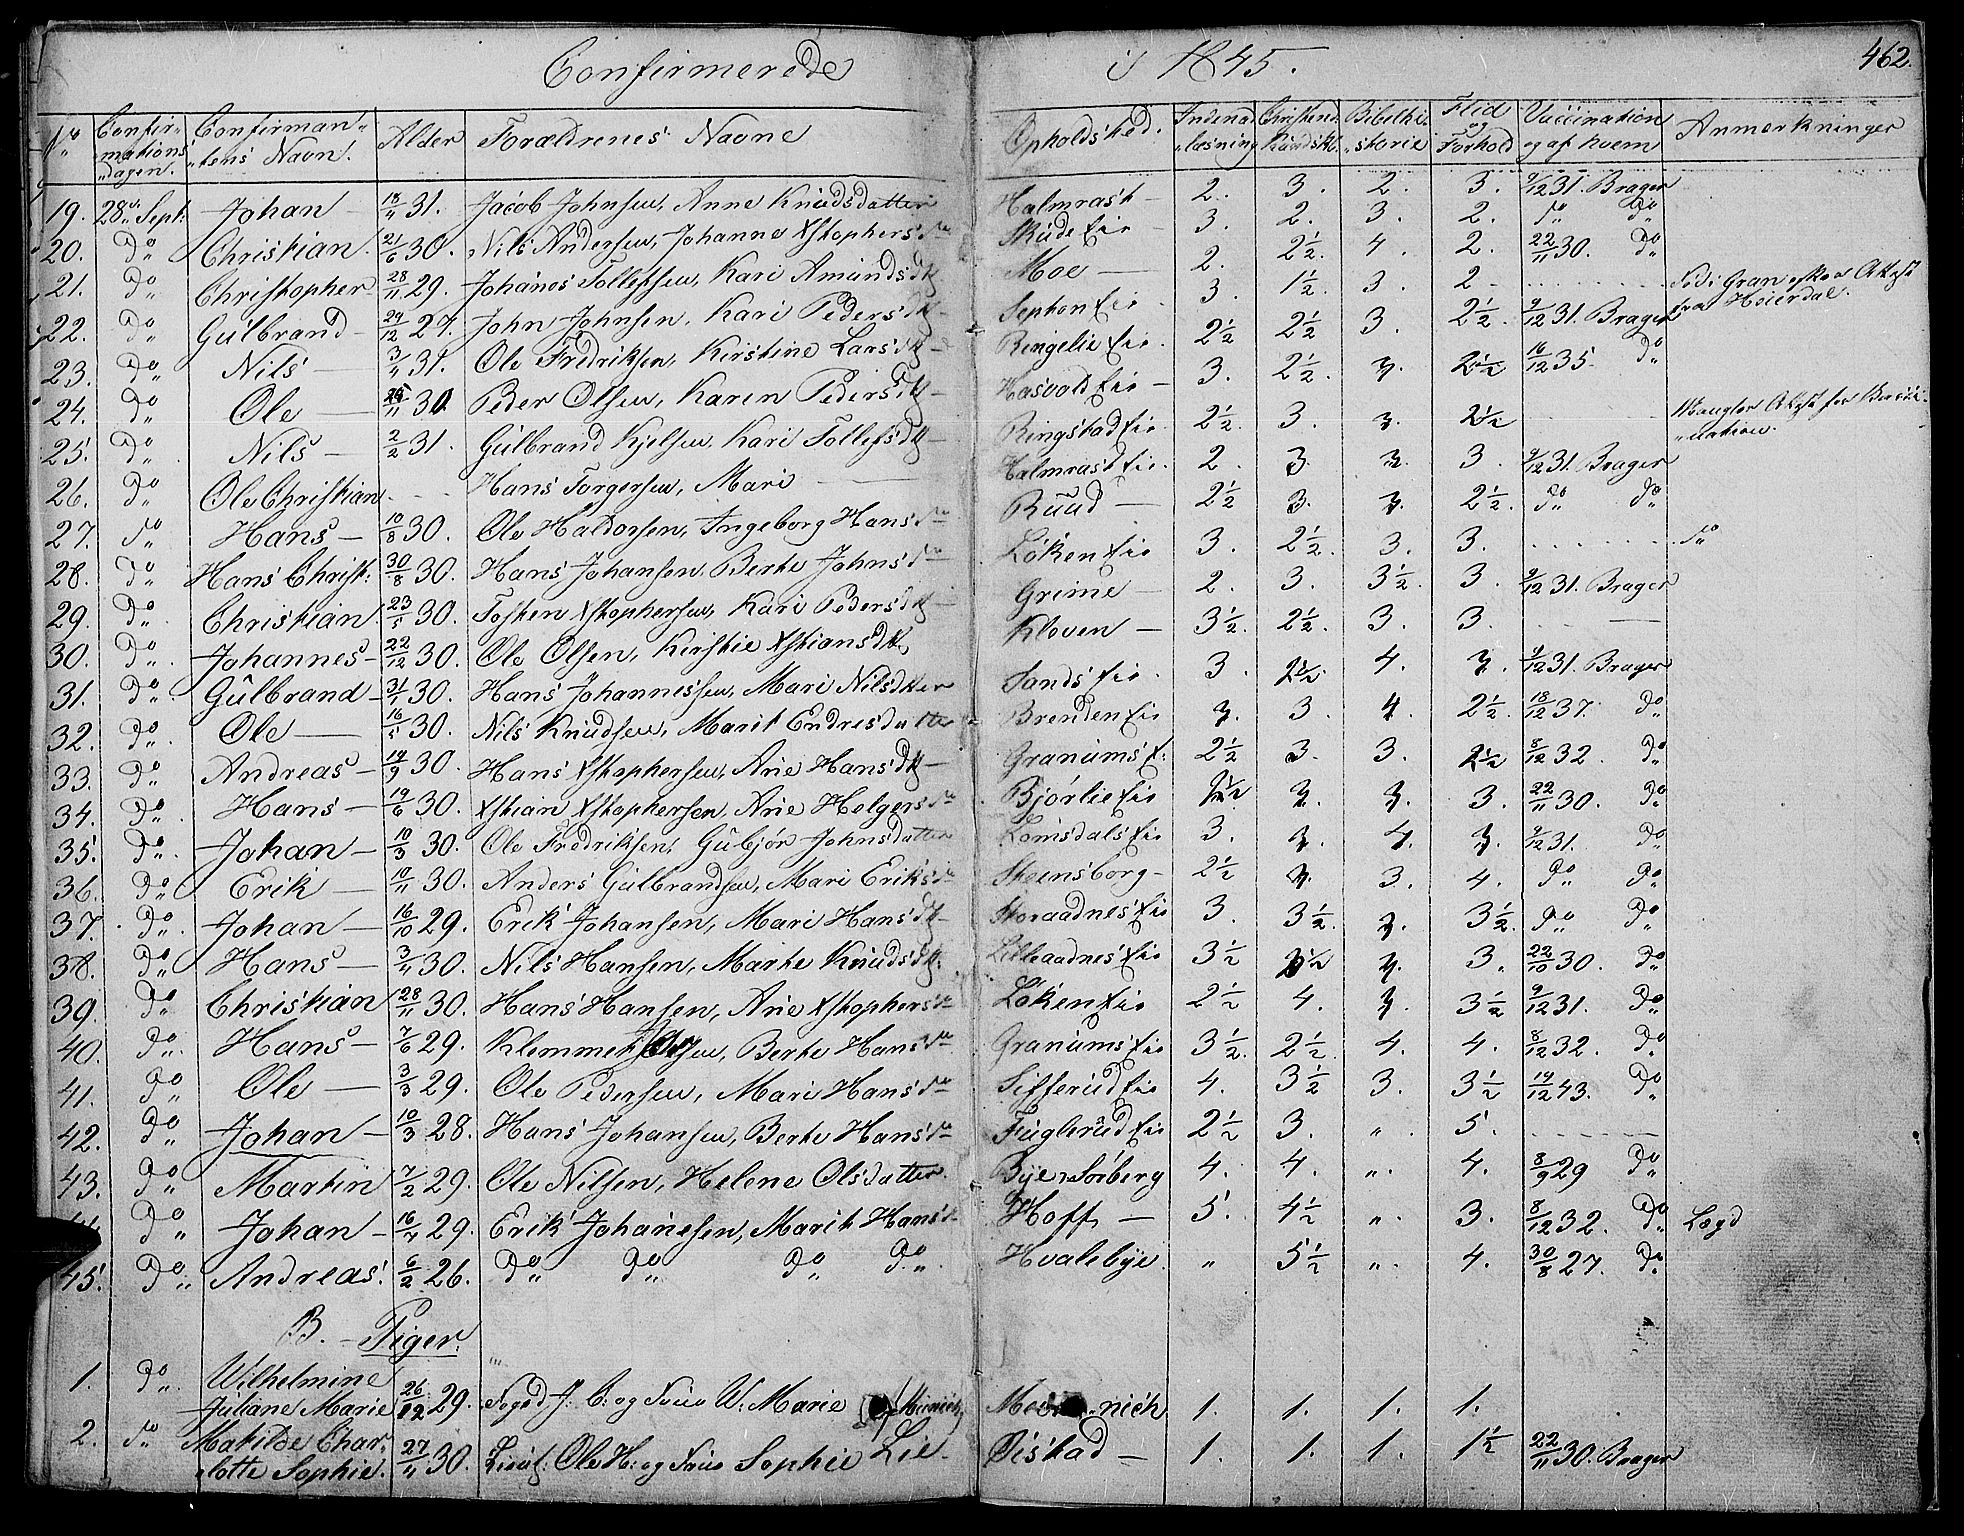 Confirmerede i 1845. 462.
No Confirmationsdagen. Confirmantens Navn. Alder Forældrenes Navne Opholdsted. Indenadlæsning Christend. Kundsk. Bibelhistorie Flid og Forhold Vaccination og af hvem Anmerkninger
19. 28de Sept: Johan — 18/11 31. Jacob Johnsen, Anne Knudsdatter Halmrast — 2. 3. 2. 3. 9/12 31. Brager
20. do Christian. 21/6 30. Nils Andersen, Johanne Xstophersdr Skudeeie — 3. 2. 3. 2. do do
21. do Christopher — 28/11 29. Johanes Tollefsen, Kari Amundsdtr Moe — 2. 2½ 4. 2. 22/11 30. do
22. do Gulbrand — 29/12 27. John Johnsen, Kari Pedersdtr — 3. 1½. 3. 2 - Föd i Gran efter Attest fra Höierdal.
23. do Nils — 3/11 31. Ole Fredriksen, Kirstine Larsdtr Ringelieeie. 2½ 2½ 3. 2½. 9/12 31. Brager
24. do Ole — 25/11 30 Peder Olsen, Karen Pedersdtr — Hasvoldeie — 3. 2½. 3. 2½ 16/12 35. do
25. do Nils — 2/2 31. Gulbrand Kjelsen, Kari Tollefsdtr — Ringstadeie. 2½. 3. 3. 2½ Mangler Attest for Vaccination.
26. do Ole Christian Hans Torgersen, Mari — Halmrasteie. 2. 3. 3. 3. 9/12 31. Brager
27. do Hans — 10/8 30. Ole Haldorsen, Ingeborg Hansdr Ruud — 2½ 3. 3. 2½. do do
28. do Hans Christ: 30/8 30. Hans Johansen, Berte Johnsdr Lökeneie 3. 2½. 3. 3. do
29. do Christian 23/5 30. Tosten Xstophersen, Kari Pedersdtr — Grime — 2. 3. 3½. 3. 9/12 31. Brager
30. do Johannes — 22/12 30. Ole Olsen, Kirstie Xstiansdtr Kloven — 3½. 2½. 3. 3. —
31. do Gulbrand — 31/1 30. Hans Johannessen, Mari Nilsdtter Sandseie. 3. 2½. 4. 3. 9/12 31. Brager
32. do Ole — 16/5 30. Nils Knudsen, Marit Endresdatter Brendeneie 3. 3. 4. 2½. 18/12 37. do
33. do Andreas — 14/9 30. Hans Xstophersen, Ane Hansdtr — Granumse: 2½ 3. 3. 2½ 8/12 32. do
34. do Hans — 19/6 30. Xstian Xstophersen, Ane Helgersdr Bjórlieeie 3. 3. 3. 22/11 30. do
35. do Johan — 10/3 30. Ole Fredriksen, Gubjór Johnsdatter Lomsdalseie 3. 3. 4. 3. 9/12 31. do
36. do Erik — 10/11 30. Anders Gulbrandsen, Mari Eriksdr Steensborg — 2½ 3. 3. 4. do do
37. do Johan — 16/10 29. Erik Johansen, Mari Hansdtr — Storaadneseie 3. 3½. 3. 3½. do do
38. do Hans — 3/11 30. Nils Hansen, Marte Knudsdtr. Lilleaadneseie 3½ 3. 3. 22/10 30. do
39. do Christian 28/11 30. Hans Hansen, Ane Xstophersdr Lökeneie 2½ 4. 3. 3½ 9/12 31. do
40. do Hans — 7/6 29. Klemmet Olsen, Berte Hansdr Granumseie 3½. 2½. 4. 4. 8/12 32. do
41. do Ole — 3/3 29. Ole Pedersen, Mari Hansdr Sifferudeie 4. 3½ 3. 3½ 19/12 43. do
42. do Johan — 10/3 28. Hans Johansen, Berte Hansdr Fuglerudeie 2½ 3. „ 5. —
43. do Martin 7/2 29. Ole Nilsen, Helene Olsdatter. Bye Sörberg 4. 4. „ 4. 8/9 29 do
do Johan — 16/11 29. Erik Johanesen, Marit Hansdr Hoff — 5. 4½ „ 3. 8/12 32. do Lægd
45. do Andreas. 6/2 26. do do do do Hvalebye. „ 5½ „ 4. 30/8 27. do
B. — Piger.
1. do Wilhelmine
Juliane Marie 26/12 29. J: C: og Frue W: Marie 1. 1. 1. 1.
2. do Matilde Char-
lotte Sophie. 27/11 30. Lieut: Ole H: og Frue Sophie Lie. Öistad — 1. 1. 1. 1½ 22/11 30. Brager